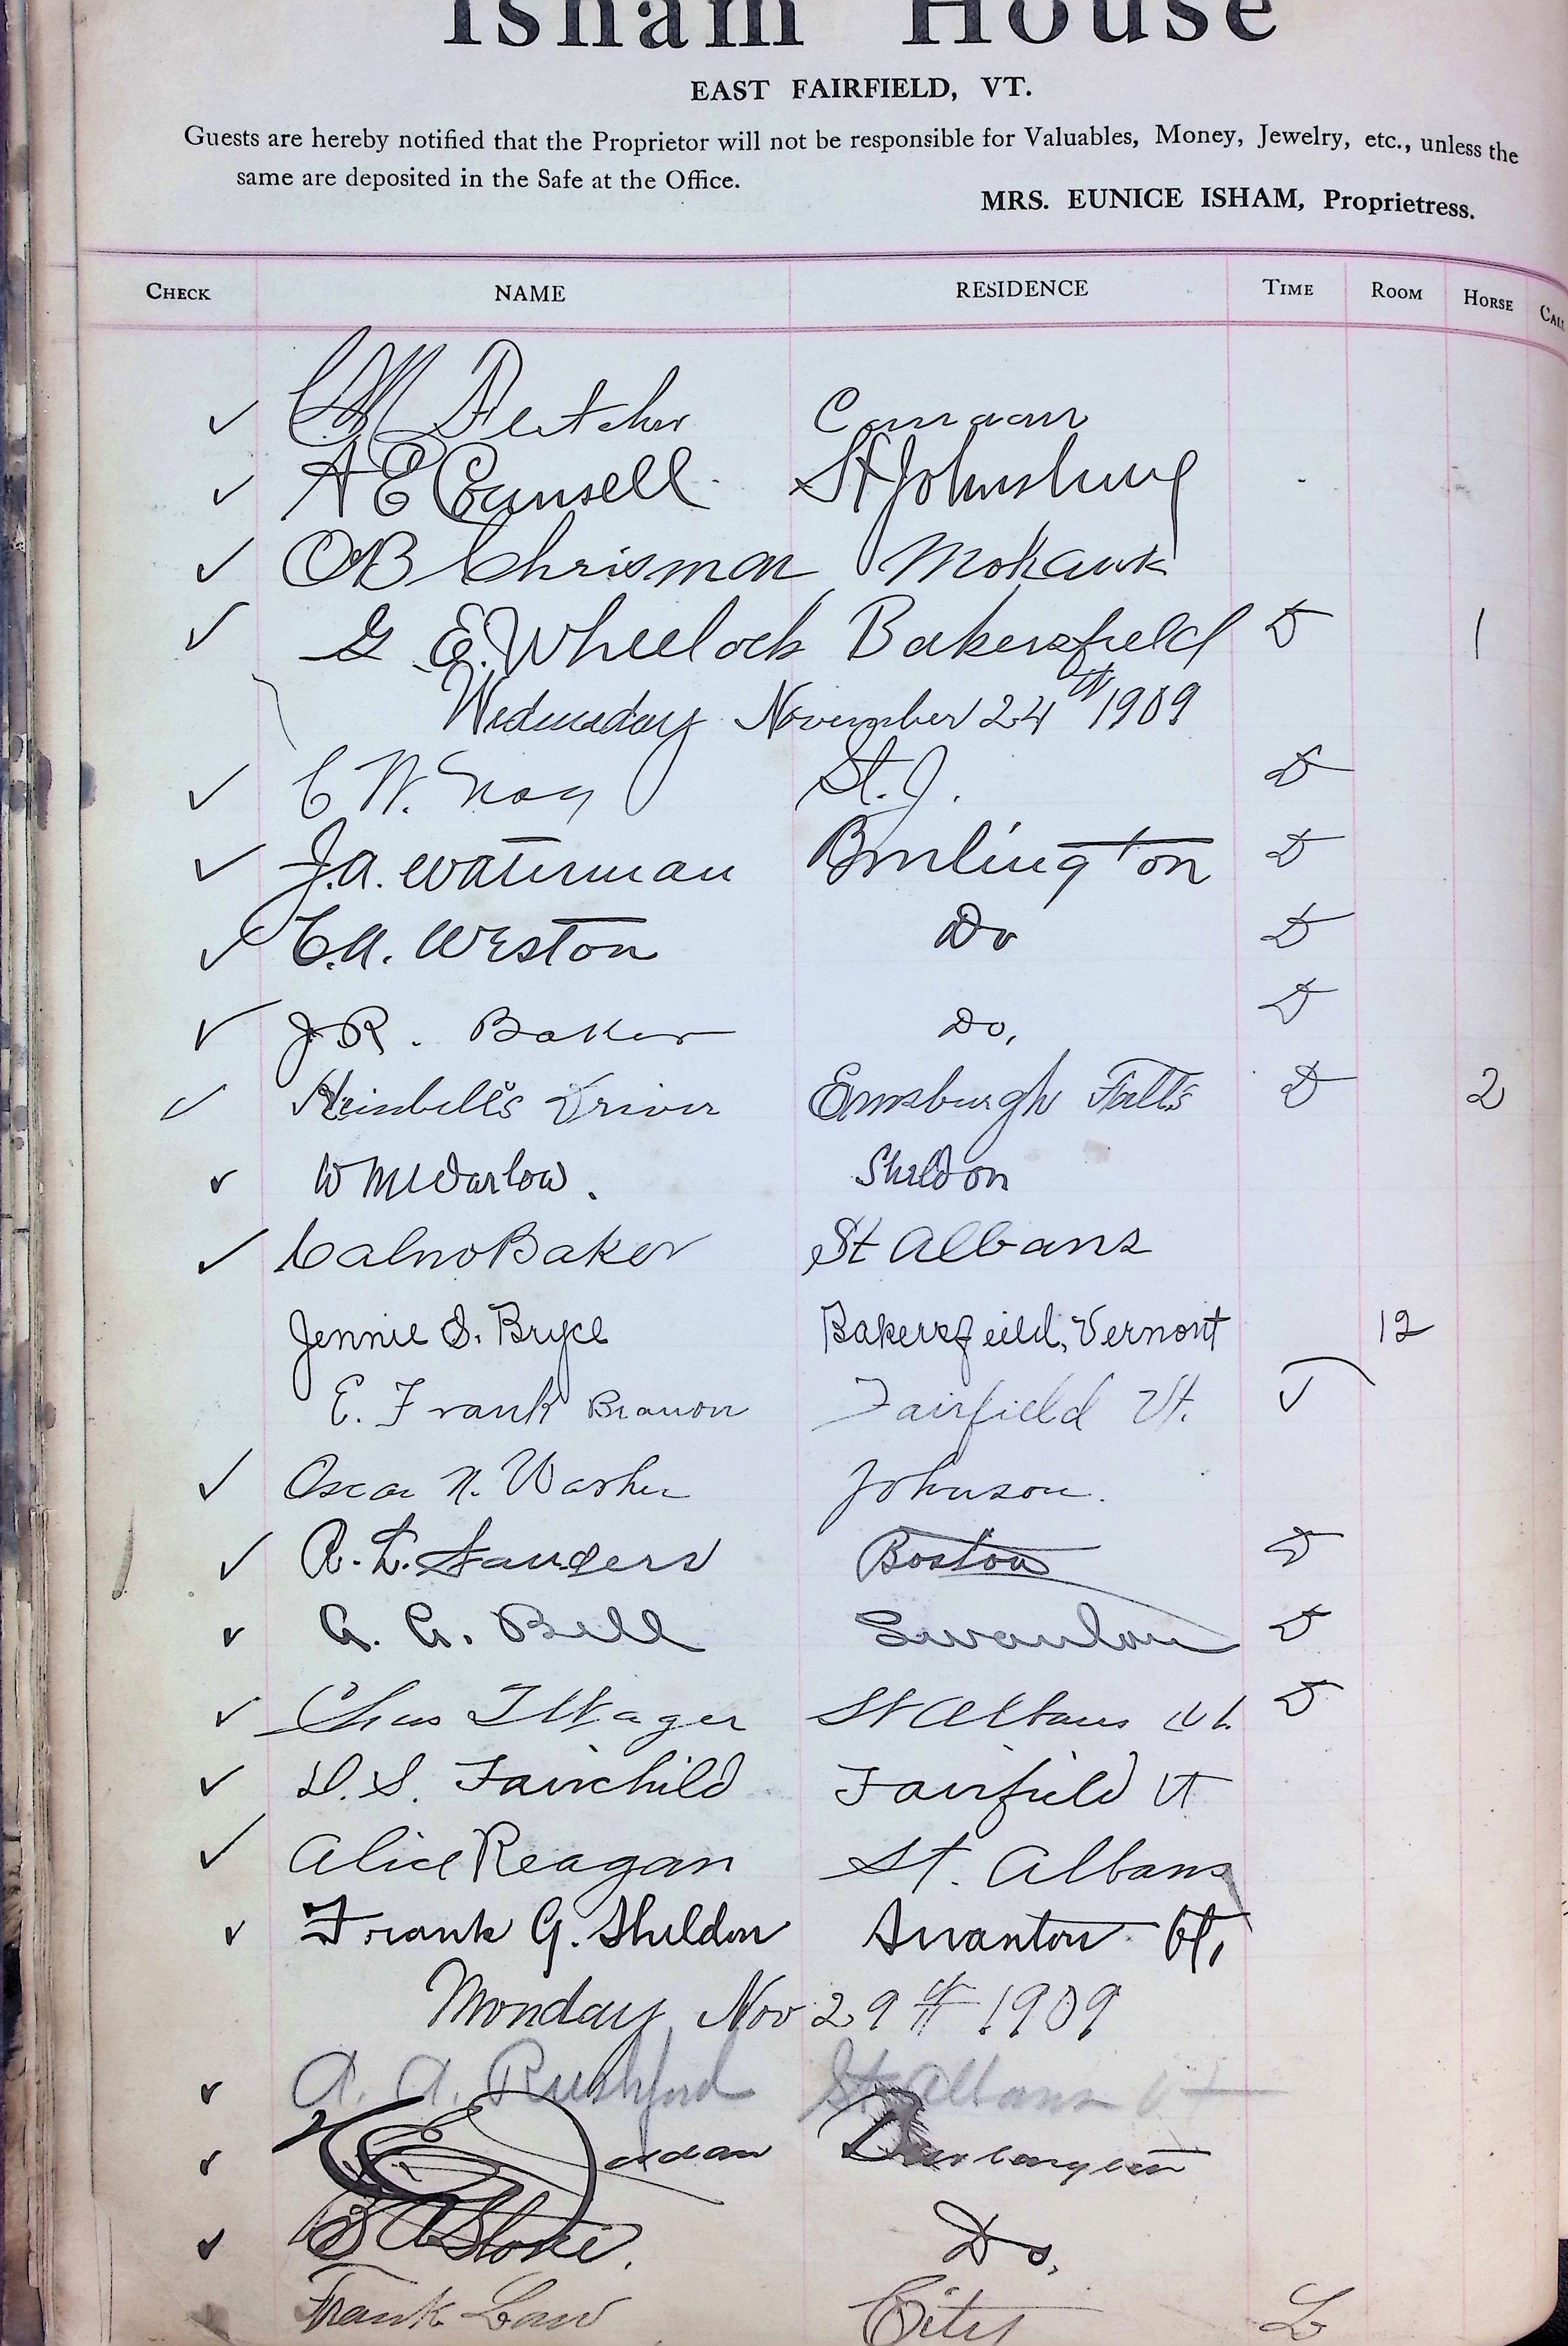 Isham House
EAST FAIRFIELD, VT.
Guests are hereby notified that the Proprietor will not be responsible for Valuables, Money, Jewelry, etc., unless the
same are deposited in the Safe at the Office.
MRS. EUNICE ISHAM, Proprietress.
CHECK NAME RESIDENCE TIME ROOM HORSE
✓ Fletcher Canaan
✓ A E Counsell St Johnsbury
✓ O B Chrisman Mohawk
✓ G. E. Wheelock Bakersfield D 1
Wednesday November 24th 1909
✓ C W. St. J. D
✓ J. A. Waterman Burlington D
✓ C. A. Weston Do D
✓ J. R. Baker Do, D
✓ Kimball's Driver Enosburgh Falls D 2
✓ W M Darlow. Sheldon
✓ Baker St Albans
Jennie S. Bryce Bakersfield, Vermont 12
E. Frank Branon Fairfield Vt.
✓ Oscar N. Washer Johnson.
✓ R. L. Sanders Boston D
✓ G. G. Bell Swanton D
✓ Chas Wager St Albans Vt. D
✓ D. S. Fairchild Fairfield Vt
✓ Alice Reagan St. Albans
✓ Frank G. Sheldon Swanton Vt,
Monday Nov 29th 1909
✓ A. A. Rushford St Albans Vt
✓ Burlington
✓ Stone. Do.
Frank Law City L